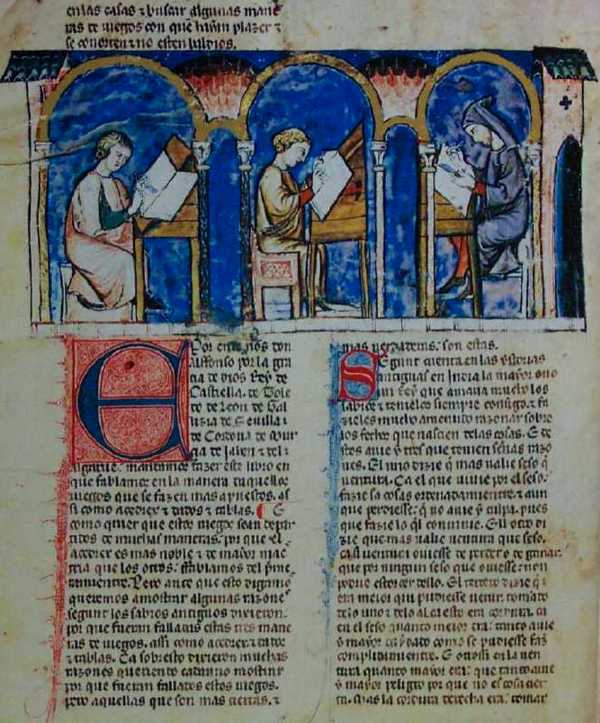 en las casas & buscar algunas mane
ras de iuegos con que hayan plazer &
se conorten & no esten baldios.
E
Por ende nos don
alffonso por la gra
cia de dios Rey de
Castiella. de Tole
do de Leon de Gal
lizia de Seuilla &
de Cordoua de Mur
çia de Jahen & del
algarue. mandamos fazer este libro en
que fablamos en la manera daquellos
iuegos que se fazen mas apuestos. as
si como açedrex & dados & tablas. E
como quier que estos iuegos sean depar
tidos de muchas maneras. por que el
açedrex es mas noble & de mayor maes
tria que los otros. fablamos del prime
ramiente. Pero ante que esto digamos
queremos amostrar algunas razones
segunt los sabios antiguos dixieron.
por que fueron fallados estas tres mane
ras de iuegos. assi como açedrex & dados
& tablas. Ca sobresto dixieron muchas
razones queriendo cadauno mostrar
por que fueran fallados estos iuegos.
pero aquellas que son mas ciertas. &
mas uerdaderas. son estas.
Segunt cuenta en las ystorias
antiguas en India la mayor ouo
un Rey que amaua mucho los
sabios & tenielos siempre consigo. & fa
zieles mucho amenudo razonar sobre
los fechos que nascien delas cosas. E de
stos auie y tres que tenien señas razo
nes. El uno dizie que mas ualie seso que
uentura. Ca el que uiuie por el seso.
fazie sus cosas ordenadamientre. & aun
que perdiesse. que no auie y culpa. pues
que fazie lo quel conuinie. El otro di
zie que mas ualie uentura que seso.
ca si uentura ouiesse de perder o de ganar.
que por ningun seso que ouiesse. non
podrie estorcer dello. El tercero dizie que
era meior qui pudiesse ueuir tomado
delo uno & delo al ca esto era cordura. ca
en el seso quanto meior era. tanto auie
y mayor cuydado como se pudiesse fazer
complidamientre. E otrossi en la uen
tura quanto mayor era. que tanto auie
y mayor peligro por que no es cosa cier
ta. Mas la cordura derecha era. tomar